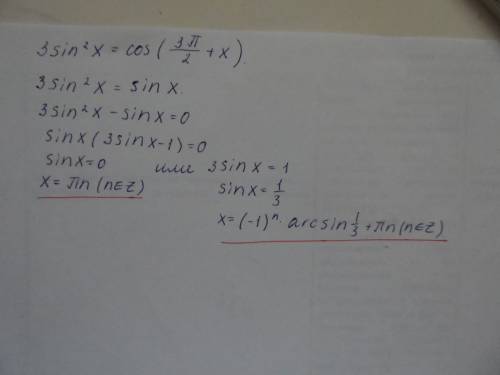 3 sin² x = cos ( 3π/2 + x ).
3 sin² x = sin x.
3 sin² x – sin x = 0
sin x ( 3 sin x – 1 ) = 0
sin x = 0 или 3 sin x = 1
x = πn (n∈Z) sin x = 1/3
x = (-1)ⁿ · arcsin 1/3 + πn (n∈Z)